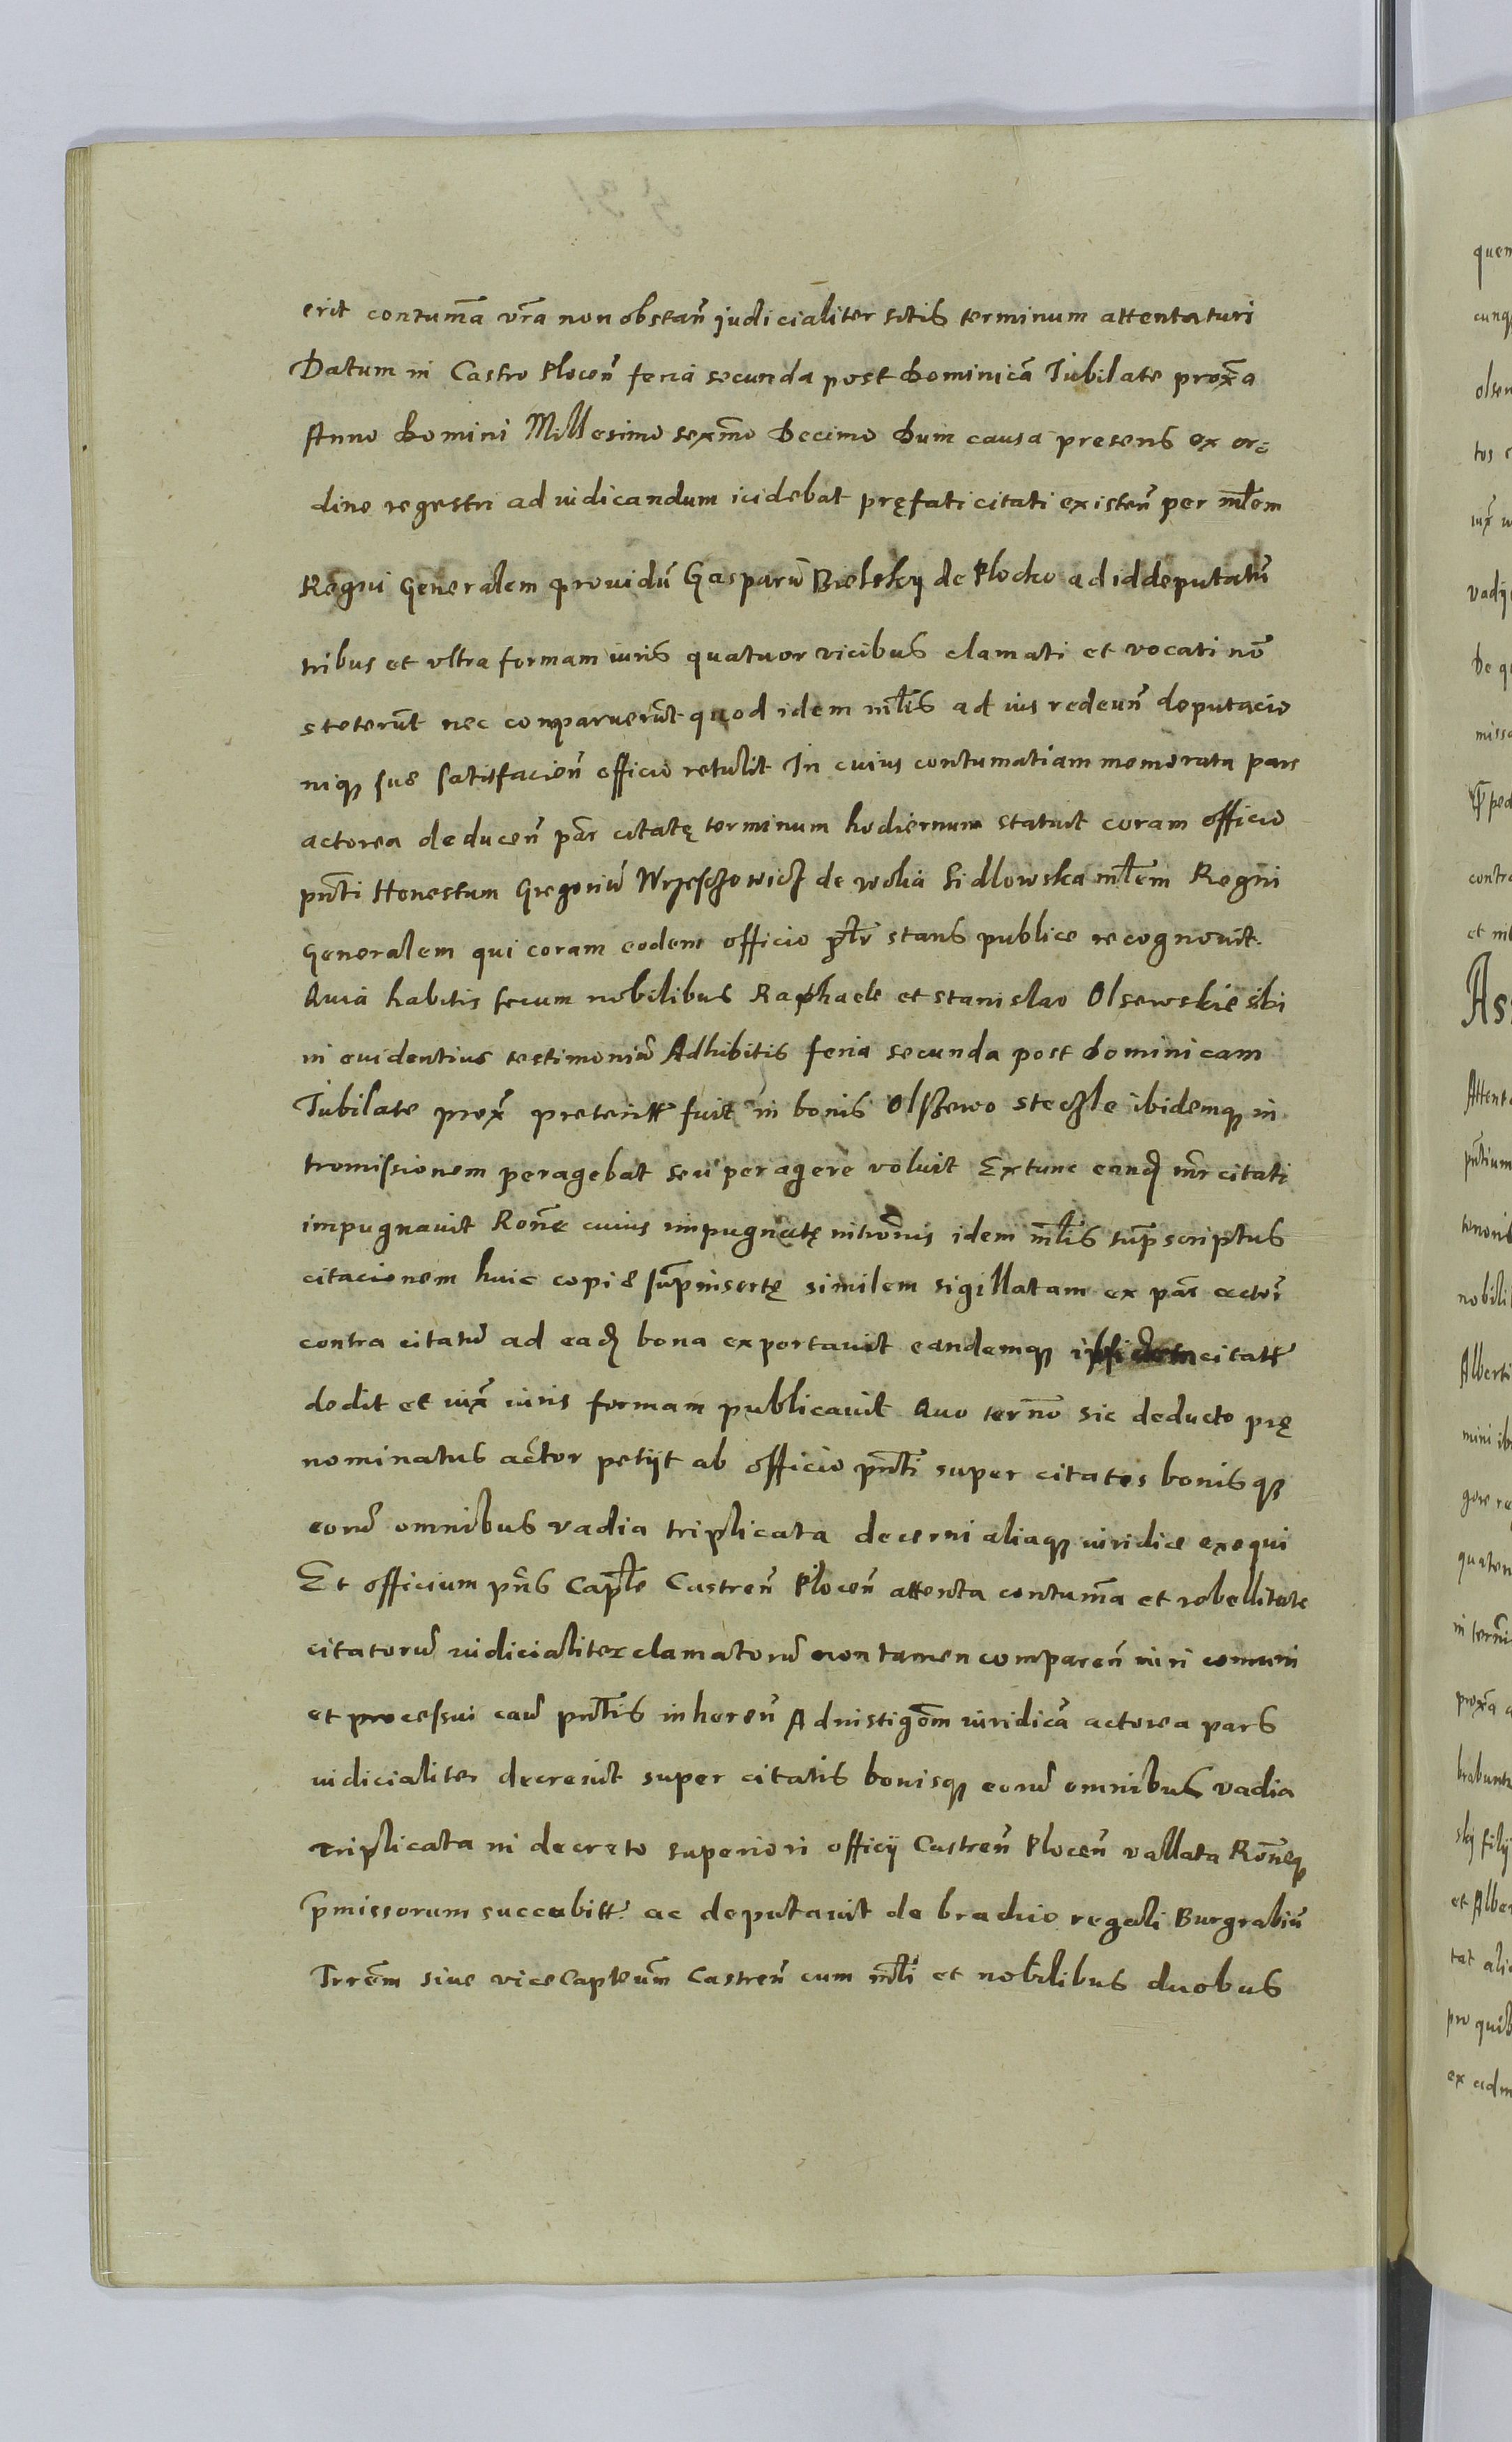 erit contuma̅ vr̅a non obstan̅ judicialiter sitis terminum attentaturi
Datum in Castro Plocen̅ feria secunda post Dominica̅ Jubilate prox̅a
Anno Domini Millesimo sexm̅o Decimo Dum causa presens ex or=
dine regestri ad iudicandum icidebat pręfati citati existen̅ per ml̅em
Regni Generalem prouidu̅ Gasparu̅ Bielsky de Plocko ad id deputatu̅
tribus et vltra formam iuris quatuor vicibus clamati et vocati no̅
steteru̅t nec comparueru̅t quod idem ml̅is ad ius redeun̅ deputacio
niq; sue satisfacien̅ officio retulit In cuius contumatiam memorata pars
actorea deducen̅ par̅ citatę terminum hodiernum statuit coram officio
pn̅ti Honestum Gregoriu̅ Wrzesczowicz de Wolia Sidlowska ml̅em Regni
Generalem qui coram eodem officio pl̅r stans publice recognouit.
Quia habitis secum nobilibus Raphaele et Stanislao Olsewskie sibi
in euidentius testimoniu̅ Adhibitis feria secunda post Dominicam
Jubilate prox̅ preteritt fuit in bonis Olszewo Steczle ibidemq; in
tromissionem peragebat seu peragere voluit Extunc eand̅ in̅r citati
impugnauit Ron̅e cuius impugnatę intro̅nis idem ml̅is sup̅scriptus
citacionem huic copie sup̅insertę similem sigillatam ex par̅ actor̅
contra citatu̅ ad ead̅ bona exportauit eandemq; citatt
dedit et iux̅ iuris formam publicauit Quo tern̅o sic deducto prę
nominatus actor petijt ab officio pn̅ti super citatos bonisq;
eoru̅ omnibus vadia triplicata decerni aliaq; iuridice exequi
Et officium pn̅s Capl̅e Castren̅ Plocen̅ attenta contuma̅ et rebellitate
citatoru̅ iudicialiter clamatoru̅ non tamen comparen̅ iuri comuni
et processui cau̅ pn̅tis inheren̅ Ad nistigo̅m iuridica̅ actorea pars
iudicialiter decreuit super citatis bonisq; eoru̅ omnibus vadia
triplicata in decreto superiori officij Castren̅ Plocen̅ vallata Ron̅eq;
p̅missorum succubitt ac deputauit de brachio regali Burgrabiu̅
Trre̅m siue viceCapteu̅m Castren̅ cum ml̅i et nobilibus duobus